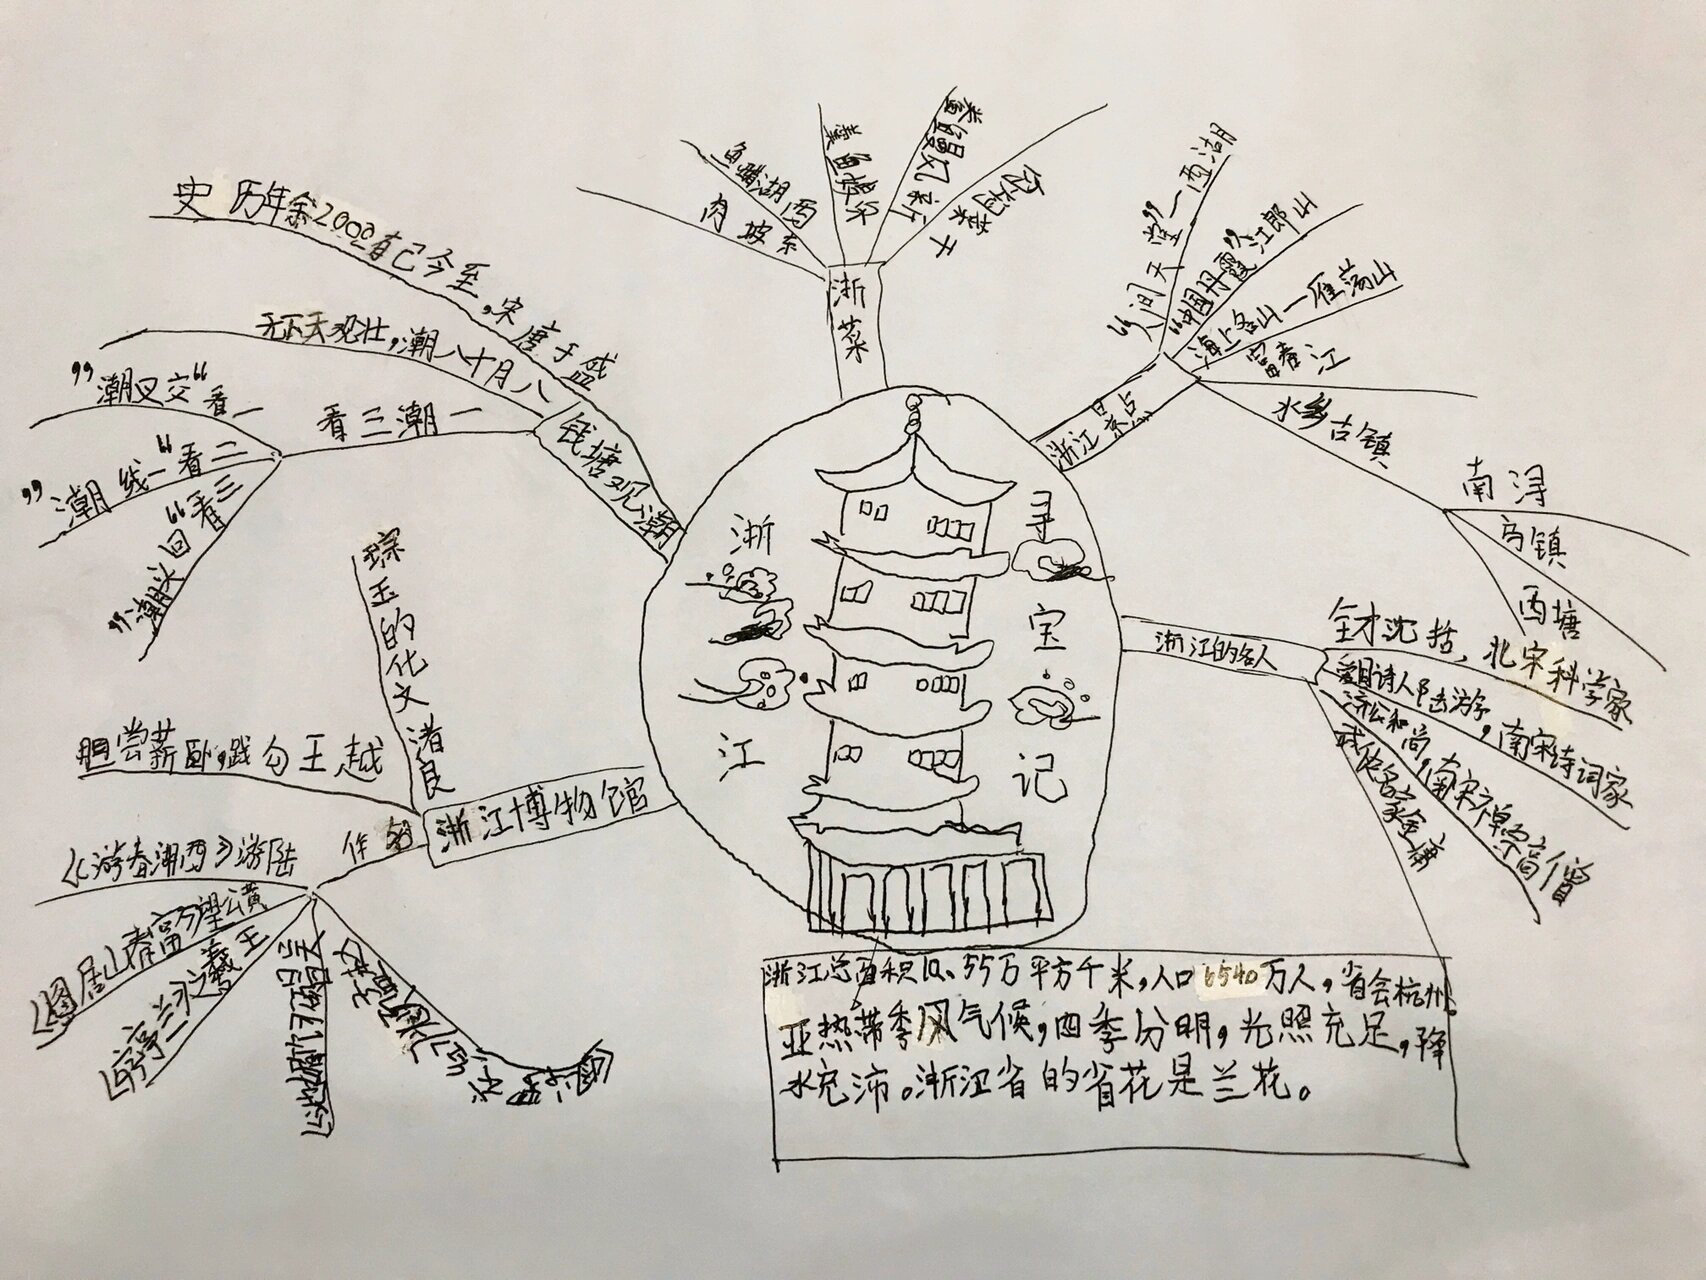 浙江
寻宝记
浙菜
东坡肉
西湖醋鱼
宋嫂鱼羹
新风鳗鲞
干菜
浙江景点
“人间天堂”一西湖
“中国丹霞”江郎山
海上名山一雁荡山
富春江
水乡古镇
南浔
乌镇
西塘
浙江的名人
全才沈括，北宋科学家
爱国诗人陆游，南宋诗词家
济公和尚，南宋禅宗高僧
武侠名家金庸
钱塘观潮
盛于唐宋，至今已有2000余年历史
八月十八潮，壮观天下无
一潮三看
一看“交叉潮”
二看“一线潮”
三看“回头潮”
浙江博物馆
良渚文化的玉琮
越王勾践，卧薪尝胆
名作
陆游《西湖春游》
黄公望《富春山居图》
王羲之《兰亭序》
浙江总面积10.55万平方千米，人口6540万人，省会杭州。
亚热带季风气候，四季分明，光照充足，降
水充沛。浙江省的省花是兰花。